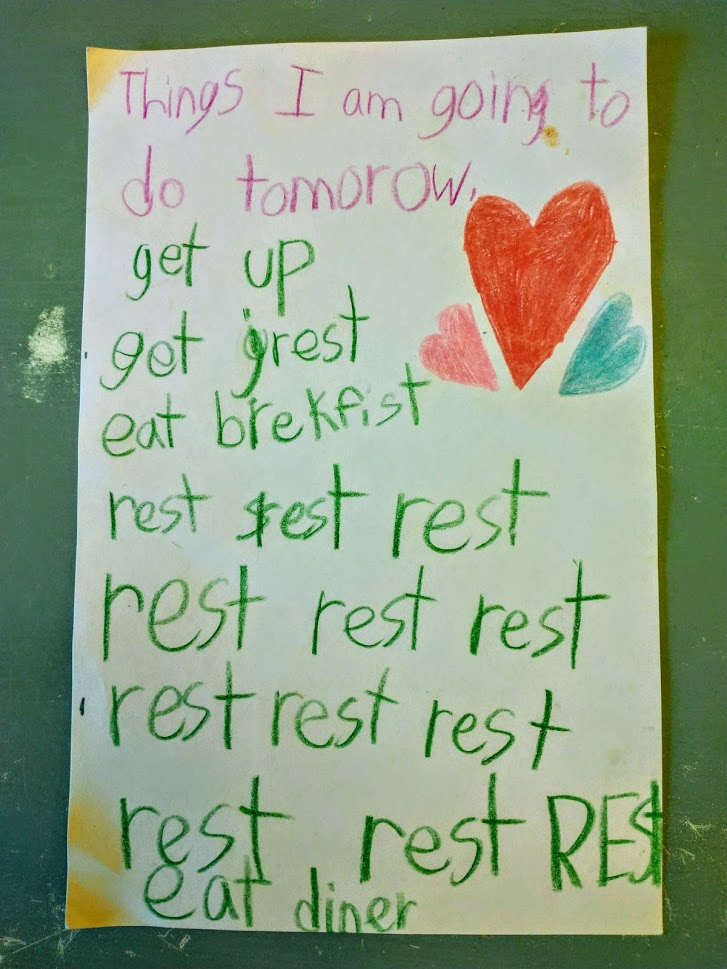 Things I am going to
do tomorow.
get up
get grest
eat brekfist
rest rest rest
rest rest rest
rest rest rest
rest rest REST
eat diner